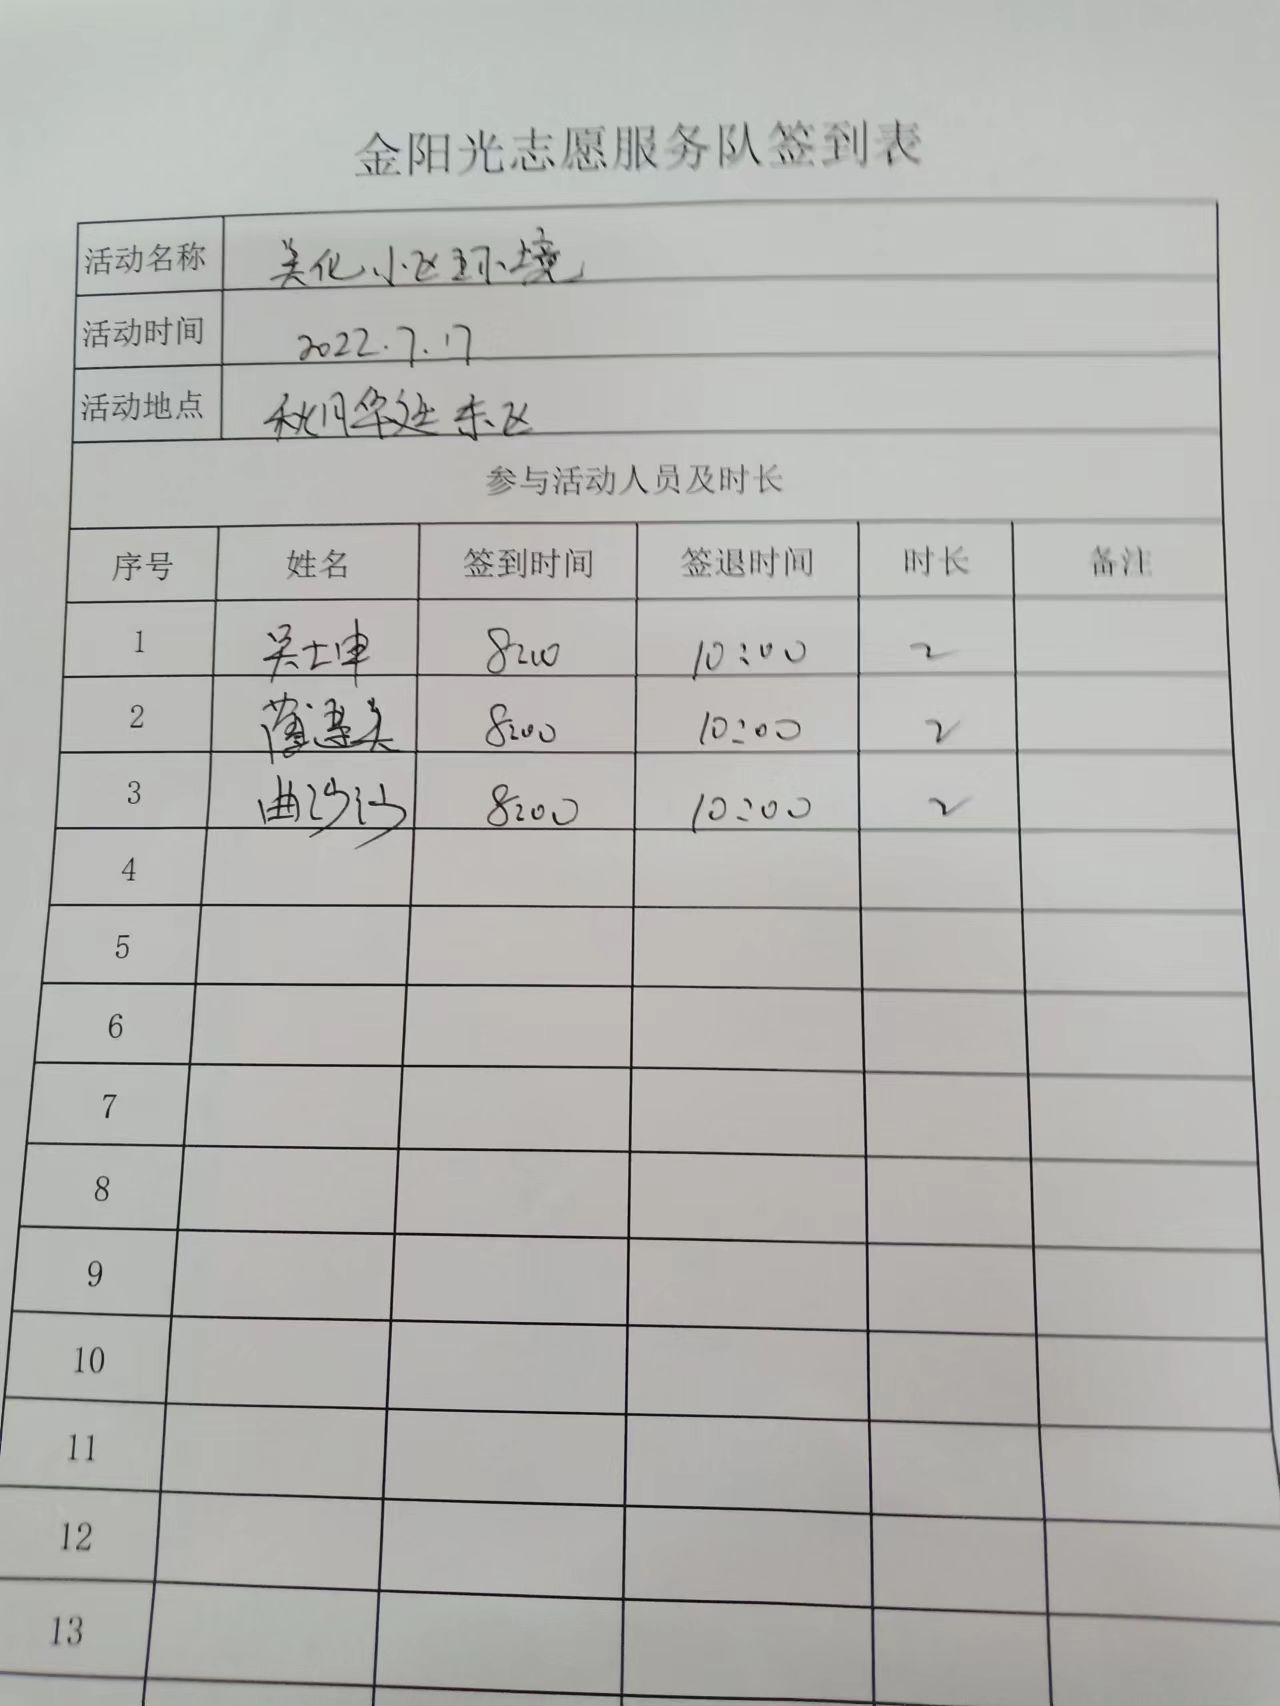 金阳光志愿服务队签到表
活动名称 美化小区环境
活动时间 2022.7.17
活动地点 秋月华廷东区
参与活动人员及时长
序号 姓名 签到时间 签退时间 时长 备注
1 吴士坤 8:00 10:00 2
2 8:00 10:00 2
3 曲沙沙 8:00 10:00 2
4
5
6
7
8
9
10
11
12
13